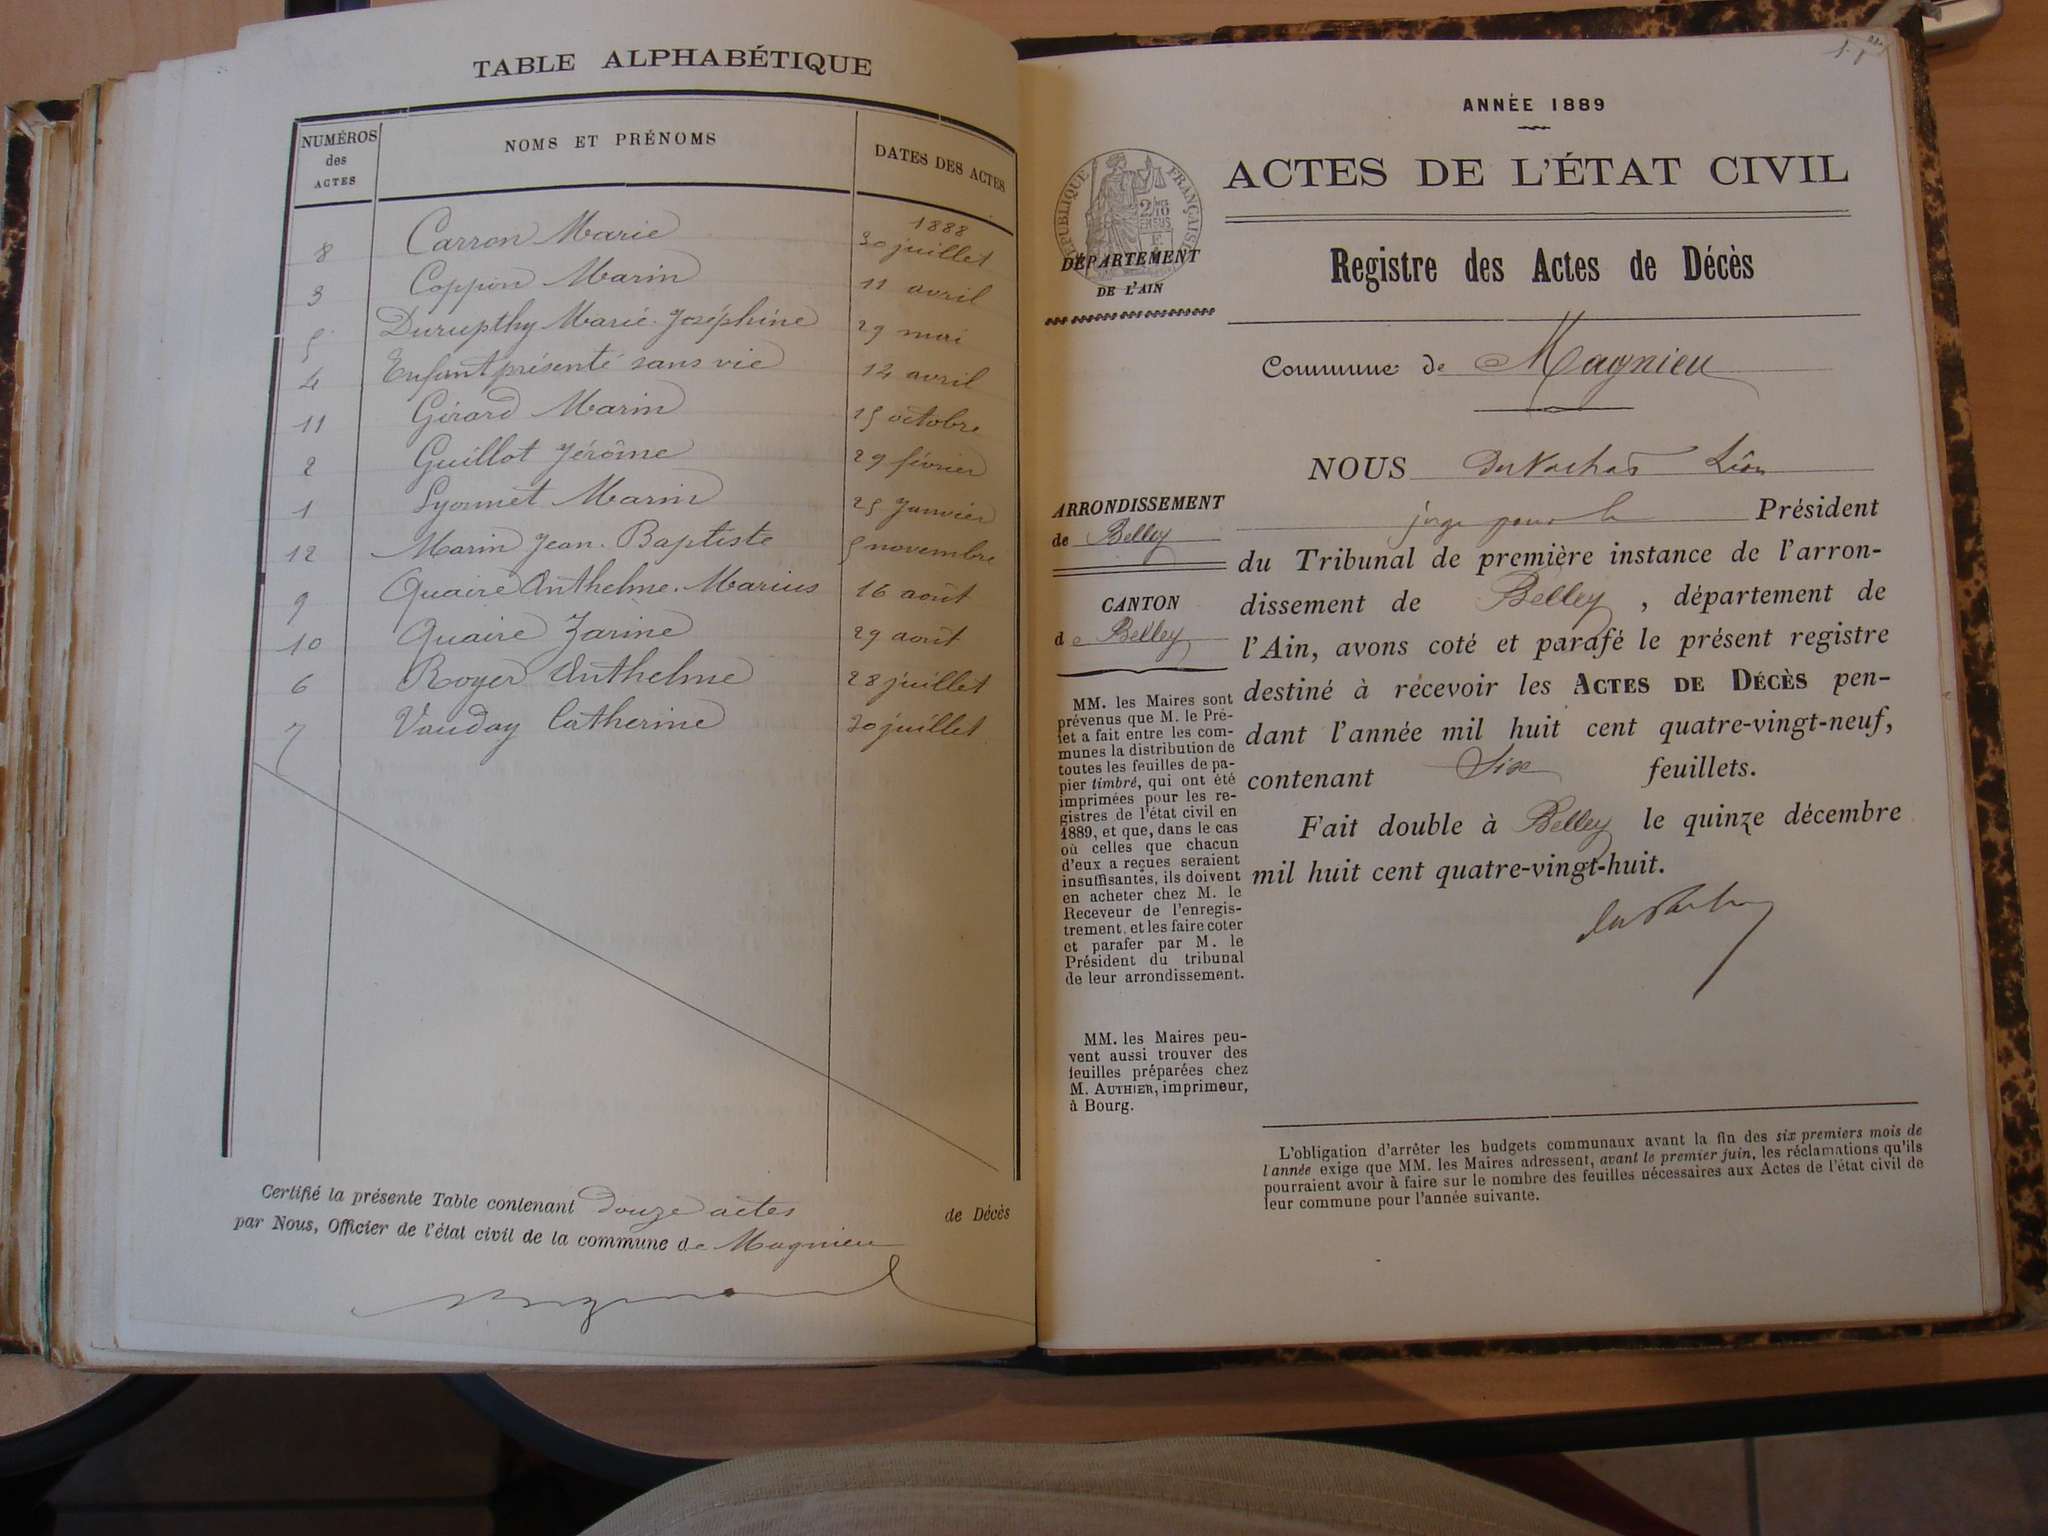 TABLE ALPHABÉTIQUE
NUMÉROS des ACTES NOMS ET PRÉNOMS DATES DES ACTES
1888
8 Carron Marie 30 juillet
3 Coppion Marin 11 avril
5 Durupthy Marie Joséphine 29 mai
4 Enfant présenté sans vie 12 avril
11 Girard Marin 25 octobre
2 Guillot Jérôme 29 février
1 Lyonnet Marin 25 Janvier
12 Marin Jean-Baptiste 5 novembre
9 Quaire Anthelme-Marius 16 août
10 Quaire Zarine 29 août
6 Royer Anthelme 28 juillet
7 Vauday Catherine 30 juillet
Certifié la présente Table contenant douze actes de Décès
par Nous, Officier de l'état civil de la commune de Magnieu
ANNÉE 1889
ACTES DE L'ÉTAT CIVIL
RÉPUBLIQUE FRANÇAISE
2/10 EN SUS
DÉPARTEMENT
DE L'AIN
Registre des Actes de Décès
Commune de Magnieu
ARRONDISSEMENT
de Belley
CANTON
de Belley
MM. les Maires sont
prévenus que M. le Pré-
fet a fait entre les com-
munes la distribution de
toutes les feuilles de pa-
pier timbré, qui ont été
imprimées pour les re-
gistres de l'état civil en
1889, et que, dans le cas
où celles que chacun
d'eux a reçues seraient
insuffisantes, ils doivent
en acheter chez M. le
Receveur de l'enregis-
trement, et les faire coter
et parafer par M. le
Président du tribunal
de leur arrondissement.
MM. les Maires peu-
vent aussi trouver des
feuilles préparées chez
M. AUTHIER, imprimeur,
à Bourg.
NOUS Léon
juge pour le Président
du Tribunal de première instance de l'arron-
dissement de Belley, département de
l'Ain, avons coté et parafé le présent registre
destiné à récevoir les ACTES DE DÉCÈS pen-
dant l'année mil huit cent quatre-vingt-neuf,
contenant Six feuillets.
Fait double à Belley le quinze décembre
mil huit cent quatre-vingt-huit.
L'obligation d'arrêter les budgets communaux avant la fin des six premiers mois de
l'année exige que MM. les Maires adressent, avant le premier juin, les réclamations qu'ils
pourraient avoir à faire sur le nombre des feuilles nécessaires aux Actes de l'état civil de
leur commune pour l'année suivante.